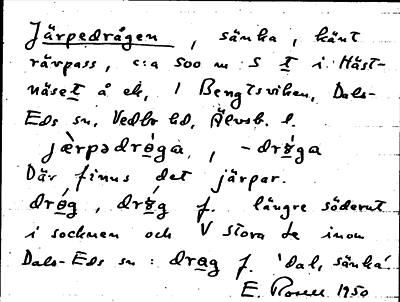 Järpedrågen, sänka, känt
rävpass, c:a 500 m S t i Häst-
näset å ek, / Bengtsviken, Dals-
Eds sn, Vedbo hd, Älvsb. l.
jærpədrǫga, , -drǫga
Där finns det järpar.
drǫg, drǫg f. längre söderut
i socknen och V stora Le inom
Dals-Eds sn: drag f. 'dal, sänka'.
E. 1950